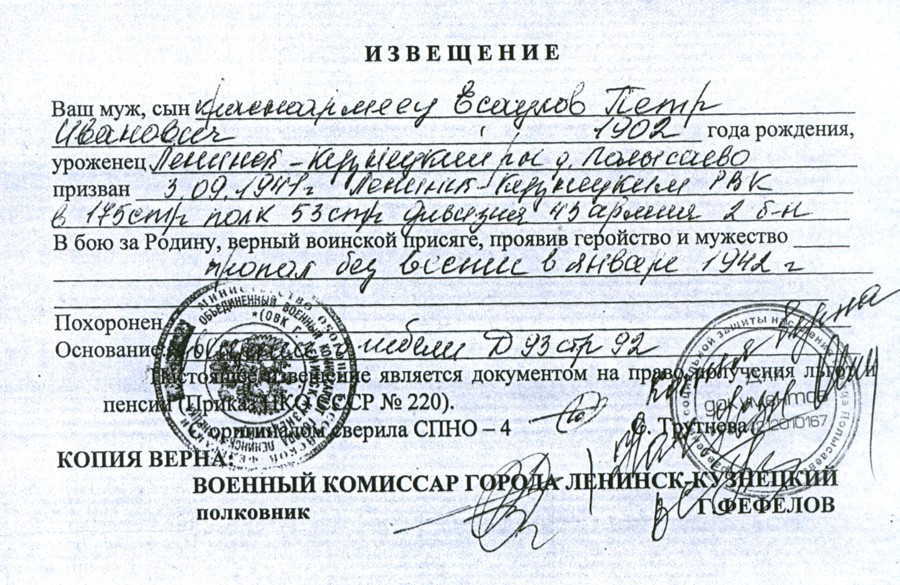 ИЗВЕЩЕНИЕ
Ваш муж, сын красноармеец Есаулов Петр
Иванович 1902 года рождения,
уроженец Ленинск-Кузнецкий р-н д. Полысаево
призван 3.09.1941г Ленинск-Кузнецким РВК
в 175 стр полк 53 стр дивизия 43 армия 2 б-н
В бою за Родину, верный воинской присяге, проявив геройство и мужество
пропал без вести в январе 1942 г
Похоронен
Основание гибели Д 93 стр 92
Настоящее извещение является документом на право получения льгот и
пенсии (Приказ НКО СССР № 220).
С оригиналом сверила СПНО – 4 С. Трутнева
КОПИЯ ВЕРНА
ВОЕННЫЙ КОМИССАР ГОРОДА ЛЕНИНСК-КУЗНЕЦКИЙ
полковник Г.ФЕФЕЛОВ
ОБЪЕДИНЕННЫЙ ВОЕННЫЙ
социальной защиты населения
Для
документов